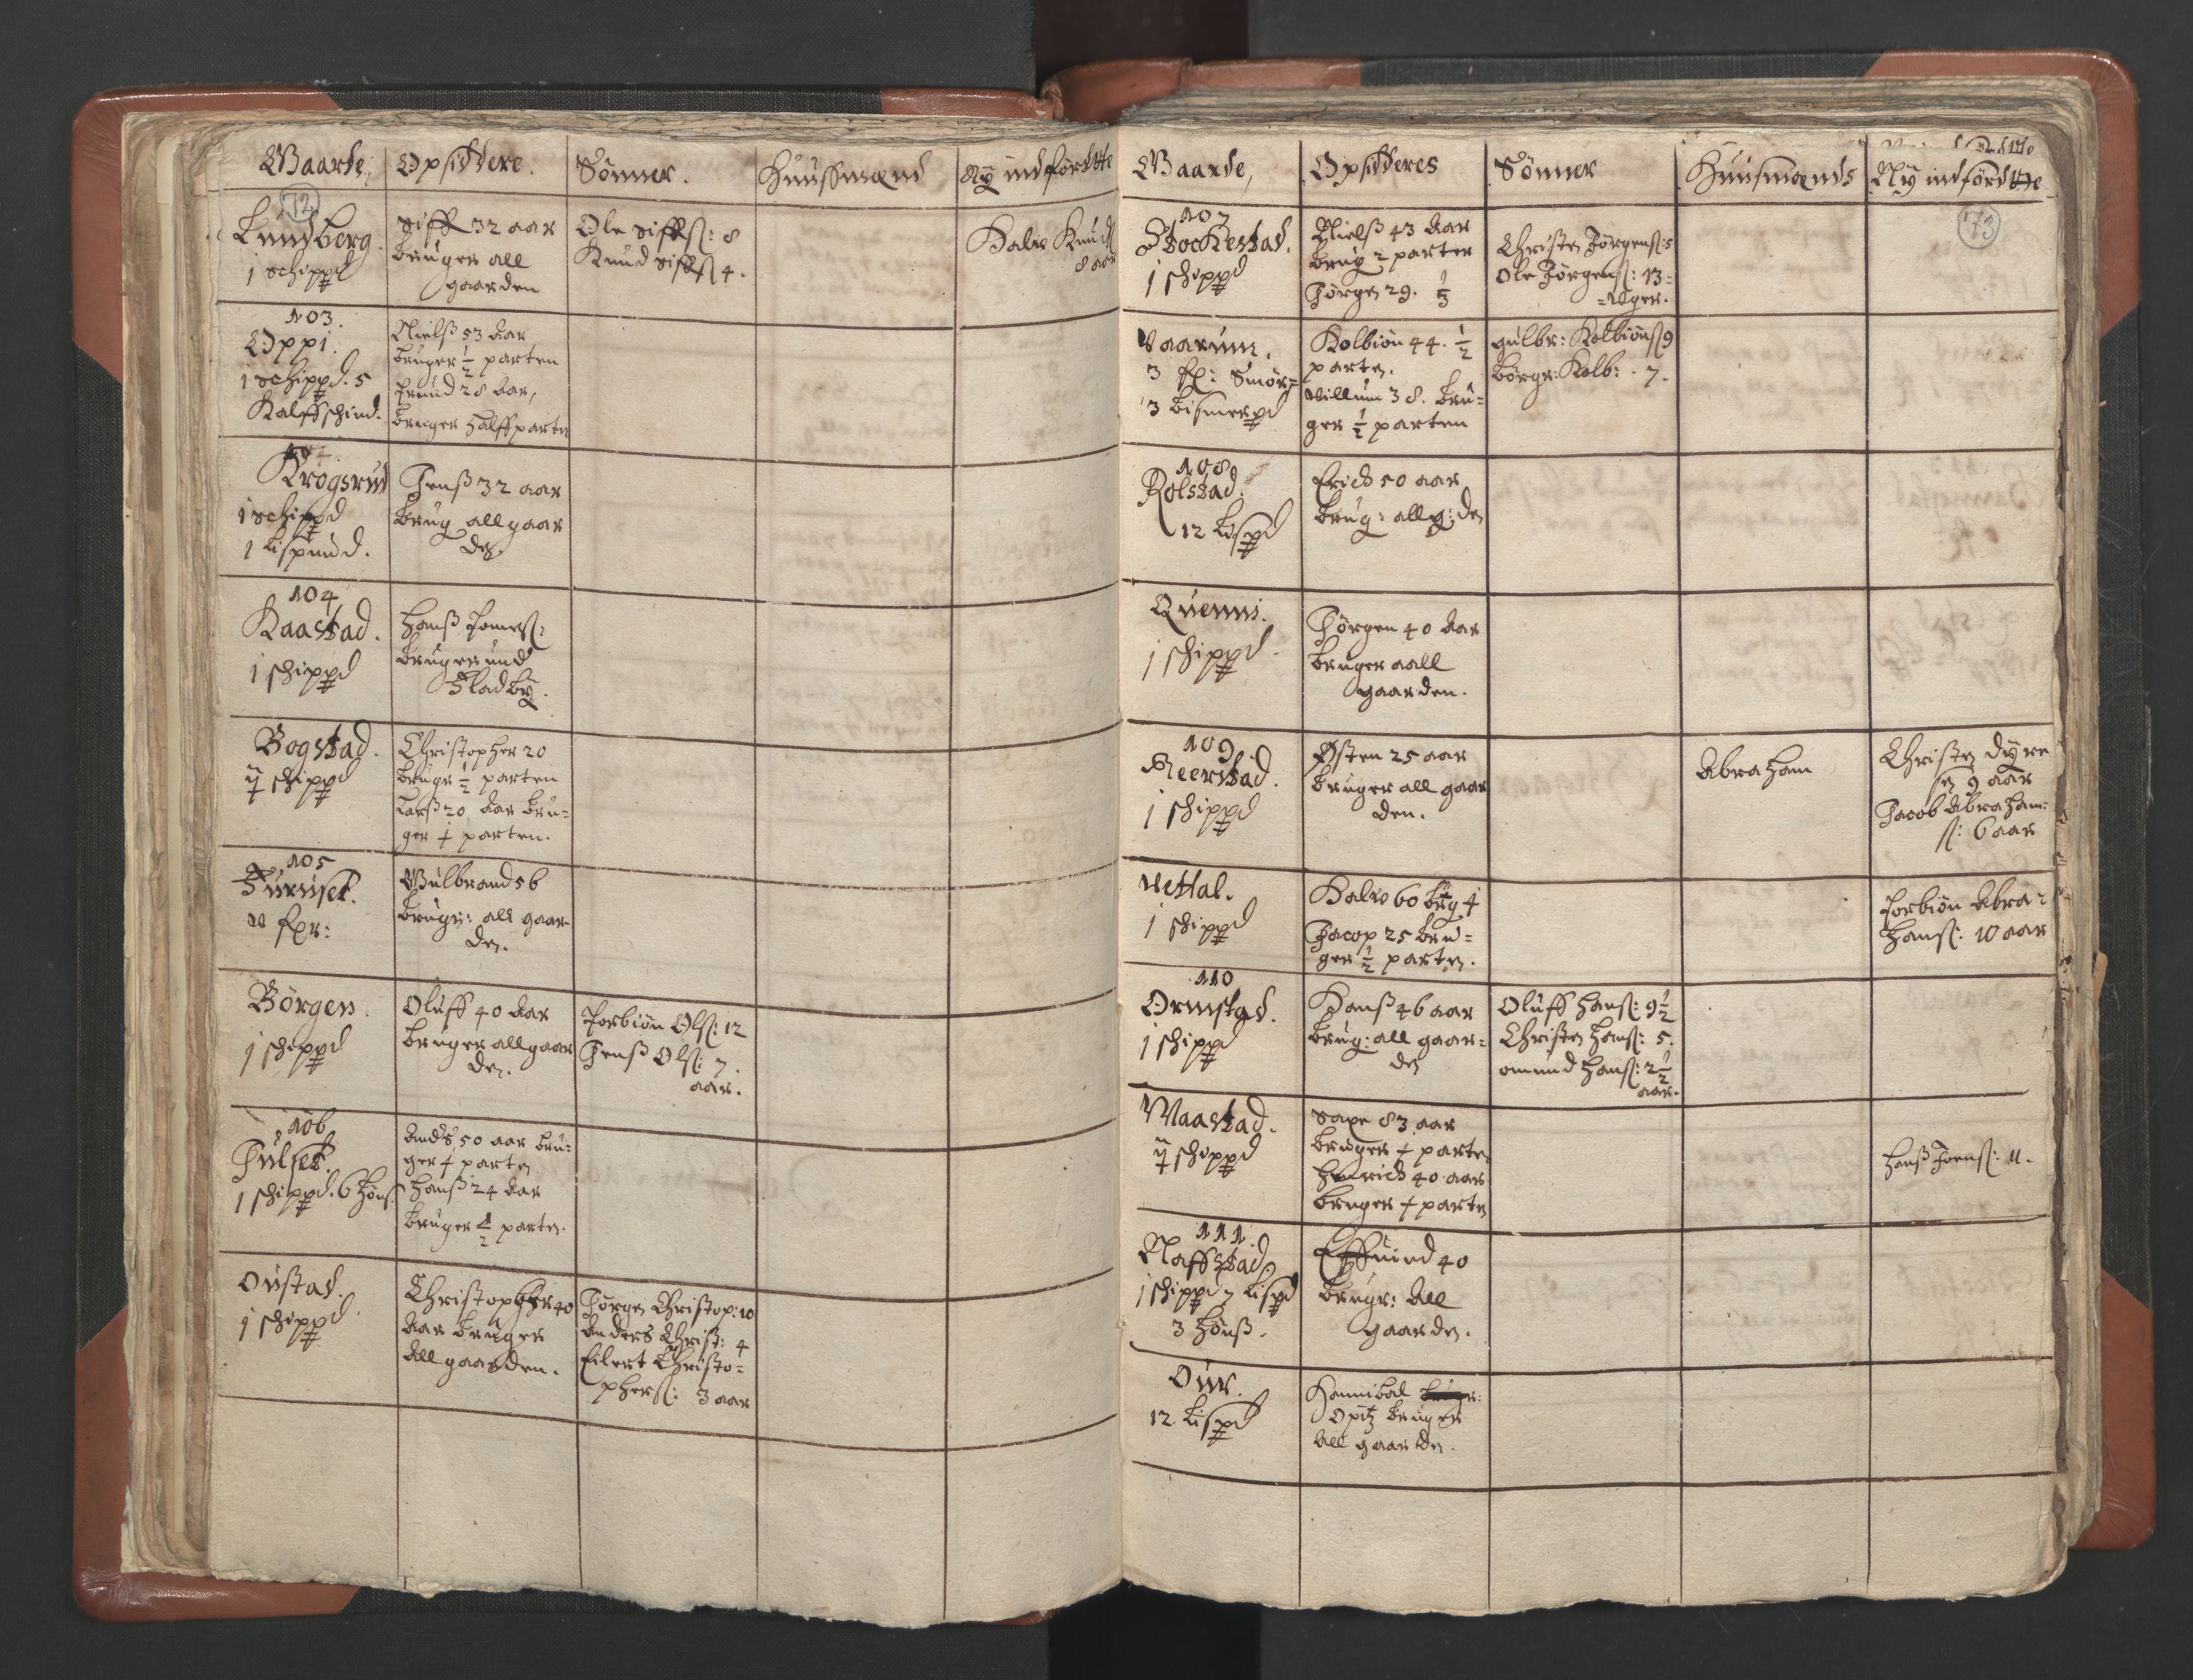 Gaarde. Opsiddere. Sønner. Huussmænd Ny indførdtte
72
Lundberg.
1 schippd
Siffr 32 aar
bruger all
gaarden
Ole Siffrß: 8
Knud Siffrß 4.
Halvo Knudß
8 aar
103.
Oppi.
1 schippd. 5
Kalffschind.
Nielß 53 Aar
bruger ½ parten
Emund 28 Aar,
bruger halffparten
Krogsrud
1 schippd
1 Lispund.
Jenß 32 aar
brug all gaar
den.
104
Kaastad.
1 schippd
Hanß
bruger und
Fladby.
Bogstad.
ij schippd
Christopher 20
brugr ½ parten
Larß 20 Aar bru-
ger ½ parten.
105
Furuset.
Gulbrand 56
brugr: all gaar-
den.
Børgen.
1 schippd
Oluff 40 Aar
bruger all gaar
den.
Torbiøn Olß: 12
Jenß Olß: 7.
aar.
106
Julset.
1 schippd. 6 Hønß
Andrs 50 aar bru-
ger ½ parten
Hanß 24 Aar
bruger ½ parten.
Oustad.
1 schippd.
Christopher 40
Aar bruger
All gaarden.
Jørgen Christop: 10
Anders Christ: 4
Eilert Christo-
pherß: 3 aar
Gaarde, Opsidderes Sønner Huusmænds Ny indførdtte
73
107
Stockestad.
1 schippd
Nielß 43 Aar
brug 2 parter
Jørgen 29. ⅓
Christen Jørgenß: 5
Ole Jørgenß: 13-
-uger.
Vaarum.
3 Smør
3 bismerpd
Kolbiøn 44. ½
parten.
Villum 38. bru-
ger ½ parten
Gulbr: Kolbiønß 9
Børgr: Kolb: 7.
108
Rolstad.
12 Lispd
Erich 50 aar
brug: all g:den
Quenni.
1 schippd.
Jørgen 40 Aar
bruger aall
gaarden.
109
Reerstad.
1 schippd
Østen 25 aar
bruger all gaar
den.
Abraham
Christen Dyre
ßn 9 aar
Jacob Abraham:
ß: 6 aar
Vettal.
1 schippd
Halvo 60 brug ½
Jacop 25 bru-
ger ½ parten.
Torbiøn Abra-
hamß: 10 aar
110
Ormstad.
1 schippd
Hanß 46 aar
brug: all gaar-
den
Oluff Hanß: 9½
Christen Hanß: 5.
Omund Hanß: 2½
aar.
Maastad.
ij schippd
Saxe 83 aar
bruger ½ parten
Henrich 40 aar
bruger ½ parten
Hanß Joenß: 11.
111.
Naffstad
1 schippd 7 Lispd
3 Hønß.
Effuind 40
brugr: All
gaarden.
Our.
12 Lispd
Hannibal brugr:
Opitz bruger
All gaarden.